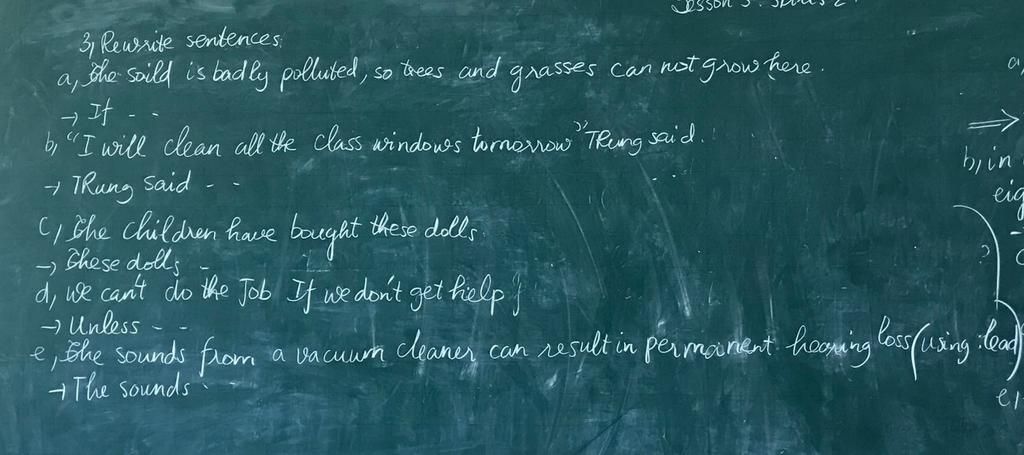 Lesson 3: skills 2.
3, Rewrite sentences:
a, The soild is badly polluted, so trees and grasses can not grow here.
→ If - -
b, "I will clean all the class windows tomorrow" TRung said.
→ TRung said - -
c, The children have bought these dolls.
→ These dolls -
d, we can't do the Job If we don't get help
→ Unless - -
e, The sounds from a vacuum cleaner can result in permanent hearing loss (using: lead)
→ The sounds
a,
⇒
b, in
eig
e,